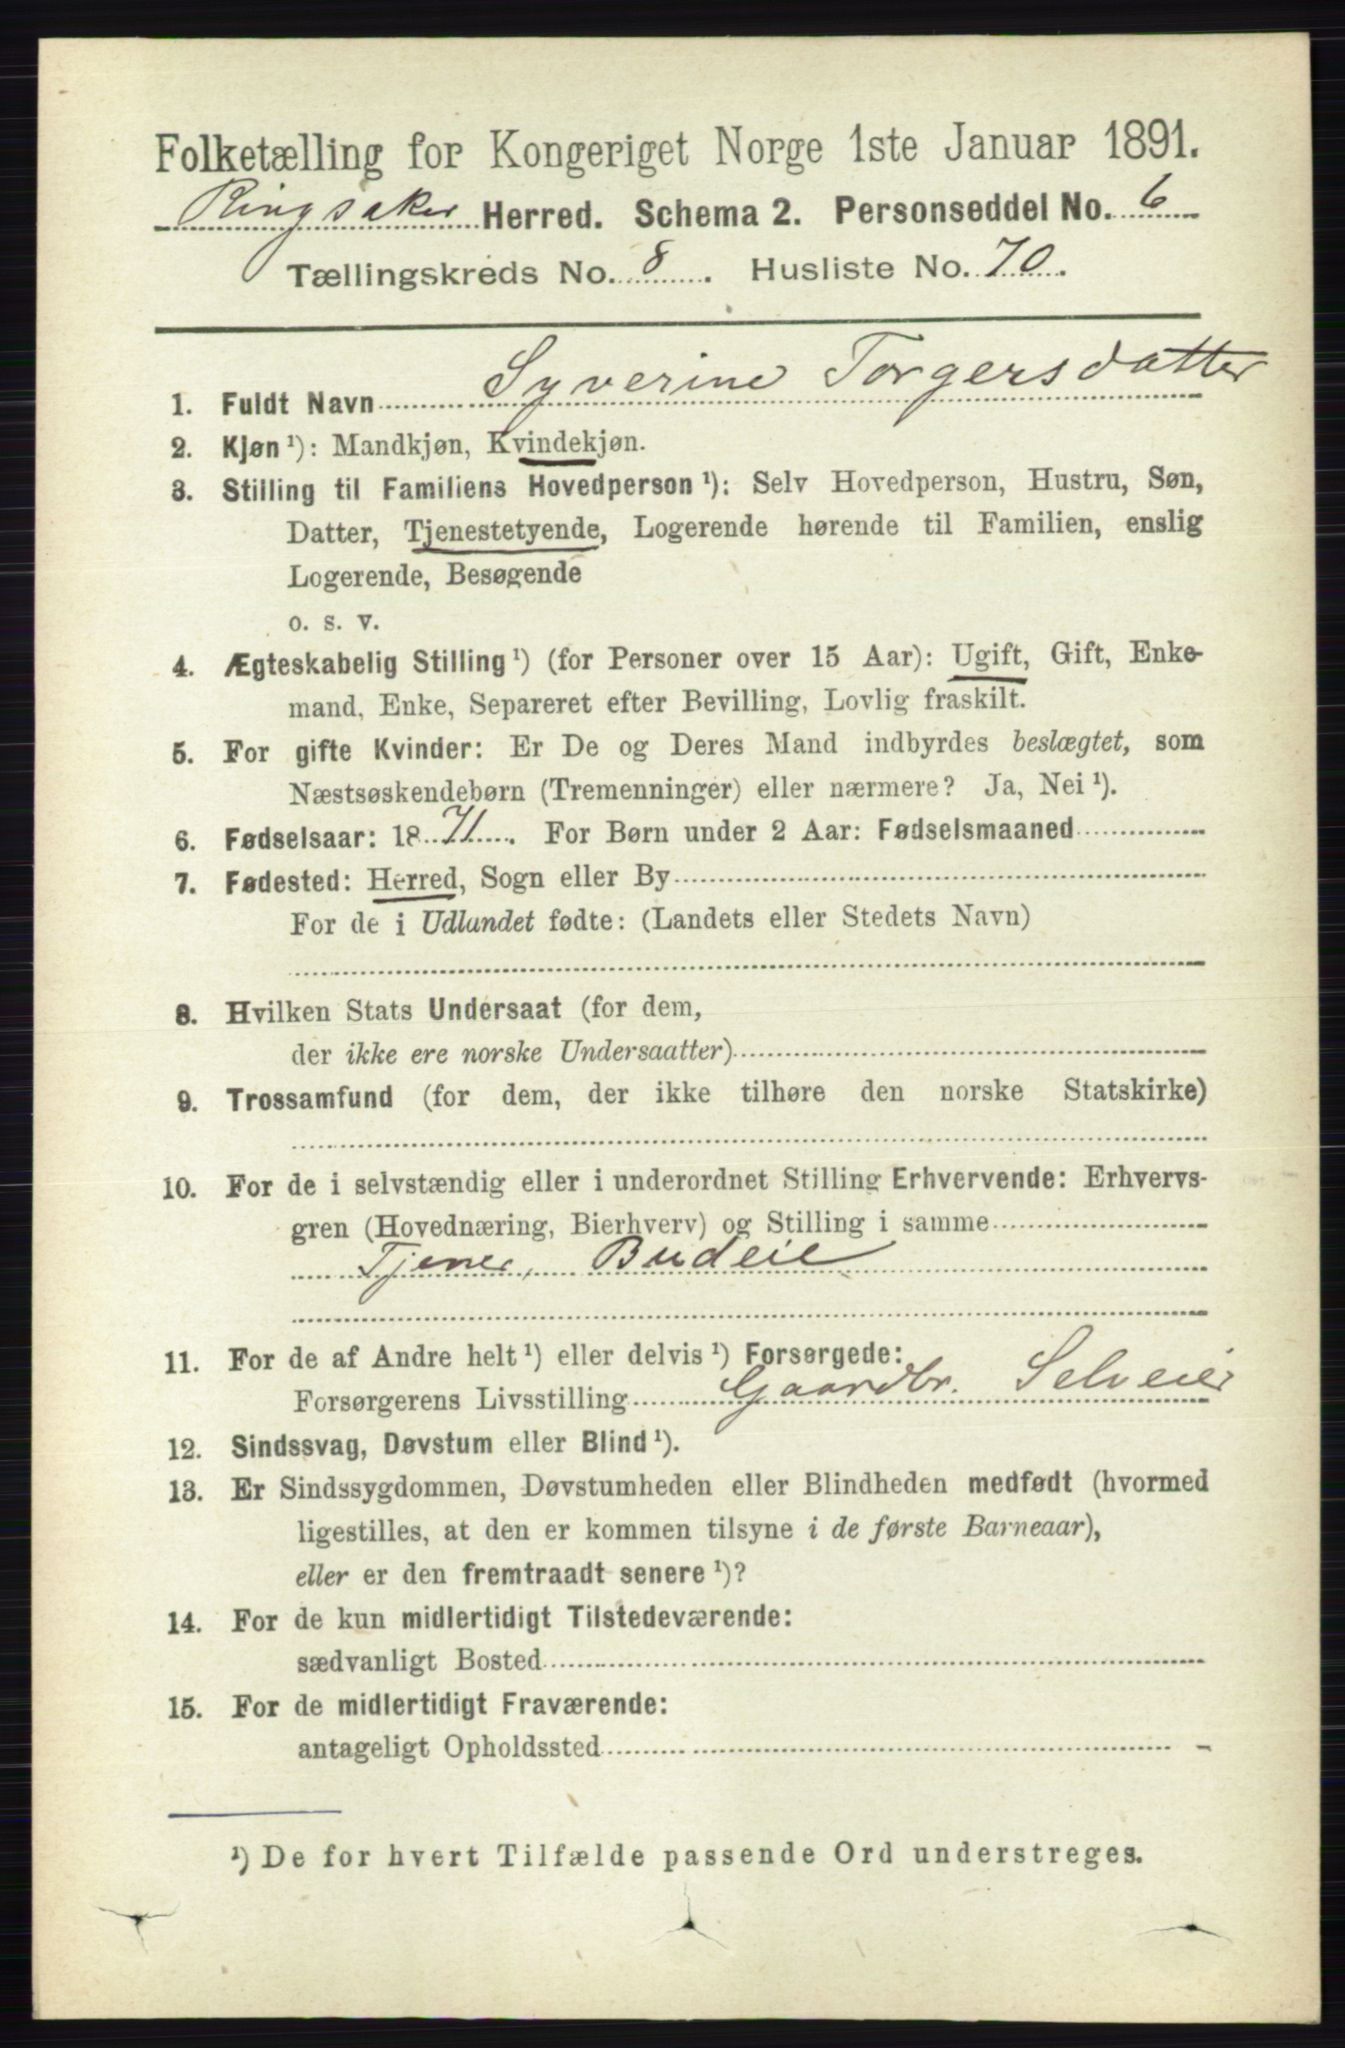 Folketælling for Kongeriget Norge 1ste Januar 1891.
Ringsaker Herred. Schema 2. Personseddel No. 6
Tællingskreds No. 8. Husliste No. 70.
1. Fuldt Navn Syverine Torgersdatter
2. Kjøn ¹): Mandkjøn, Kvindekjøn.
3. Stilling til Familiens Hovedperson ¹): Selv Hovedperson, Hustru, Søn,
Datter, Tjenestetyende, Logerende hørende til Familien, enslig
Logerende, Besøgende
o. s. v.
4. Ægteskabelig Stilling ¹) (for Personer over 15 Aar): Ugift, Gift, Enke-
mand, Enke, Separeret efter Bevilling, Lovlig fraskilt.
5. For gifte Kvinder: Er De og Deres Mand indbyrdes beslægtet, som
Næstsøskendebørn (Tremenninger) eller nærmere? Ja, Nei ¹).
6. Fødselsaar: 1871. For Børn under 2 Aar: Fødselsmaaned
7. Fødested: Herred, Sogn eller By
For de i Udlandet fødte: (Landets eller Stedets Navn)
8. Hvilken Stats Undersaat (for dem,
der ikke ere norske Undersaatter)
9. Trossamfund (for dem, der ikke tilhøre den norske Statskirke)
10. For de i selvstændig eller i underordnet Stilling Erhvervende: Erhvervs-
gren (Hovednæring, Bierhverv) og Stilling i samme
Tjener, Budeie
11. For de af Andre helt ¹) eller delvis ¹) Forsørgede:
Forsørgerens Livsstilling Gaardbr. Selveier
12. Sindssvag, Døvstum eller Blind ¹).
13. Er Sindssygdommen, Døvstumheden eller Blindheden medfødt (hvormed
ligestilles, at den er kommen tilsyne i de første Barneaar),
eller er den fremtraadt senere ¹)?
14. For de kun midlertidigt Tilstedeværende:
sædvanligt Bosted
15. For de midlertidigt Fraværende:
antageligt Opholdssted
¹) De for hvert Tilfælde passende Ord understreges.